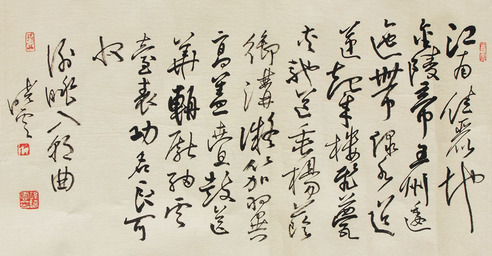 江南佳麗地
金陵帝王州逶
迤帶綠水迢
遞起朱樓飛甍
夾馳道垂楊蔭
御溝凝笳翼
高蓋疊鼓送
華輈獻納雲
臺表功名良可
收
謝眺入朝曲